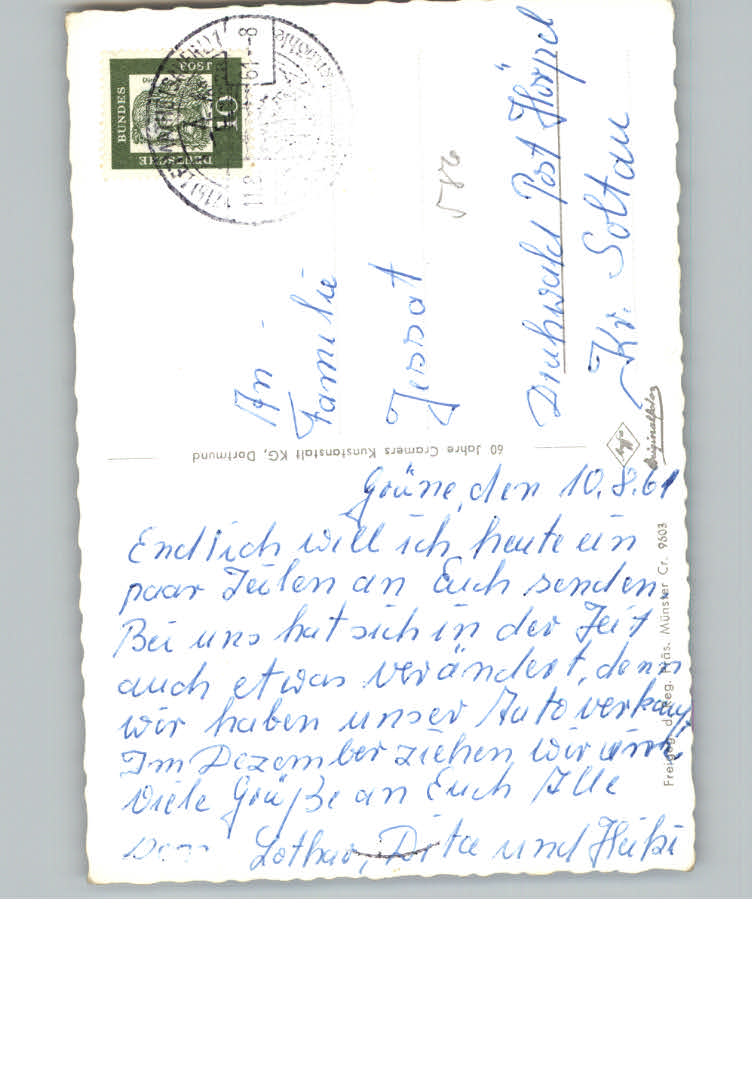 Grüne, den 10.8.61
Endlich will ich heute ein
paar Zeilen an Euch senden.
Bei uns hat sich in der Zeit
auch etwas verändert, denn
wir haben unser Auto verkauf
Im Dezember ziehen wir um.
Viele Grüße an Euch Alle
Lothar, und
An
Familie
Jessat
Druhwald Post Hörpel
Kr. Soltau
586
60 Jahre Cramers Kunstanstalt KG, Dortmund
Originalfoto
Münster Cr. 9603
DEUTSCHE
BUNDES
10